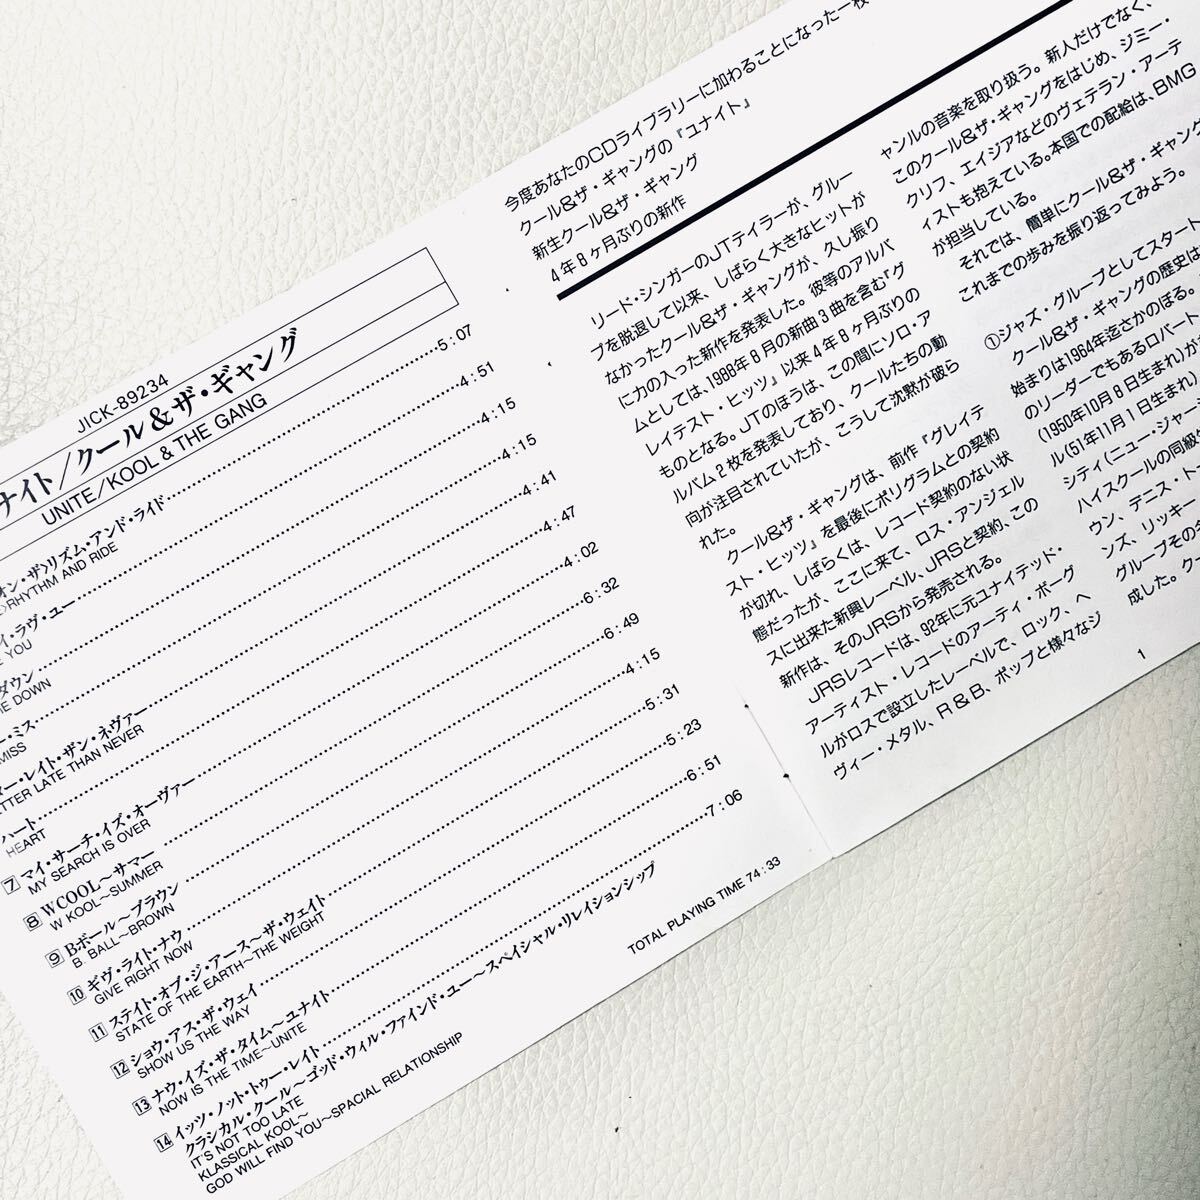 JICK-89234
ナイト/クール&ザ・ギャング
UNITE/KOOL & THE GANG
オン・ザ〉リズム・アンド・ライド 5:07
RHYTHM AND RIDE
ラヴ・ユー 4:51
YOU
ダウン 4:15
DOWN
ミス 4:15
MISS
レイト・ザン・ネヴァー 4:41
LATE THAN NEVER
ハート 4:47
HEART
7 マイ・サーチ・イズ・オーヴァー 4:02
MY SEARCH IS OVER
8 WCOOL〜サマー 6:32
W KOOL〜SUMMER
9 Bボール〜ブラウン 6:49
B. BALL〜BROWN
10 ギヴ・ライト・ナウ 4:15
GIVE RIGHT NOW
11 ステイト・オブ・ジ・アース〜ザ・ウェイト 5:31
STATE OF THE EARTH〜THE WEIGHT
12 ショウ・アス・ザ・ウェイ 5:23
SHOW US THE WAY
13 ナウ・イズ・ザ・タイム〜ユナイト 6:51
NOW IS THE TIME〜UNITE
14 イッツ・ノット・トゥー・レイト 7:06
クラシカル・クール〜ゴッド・ウィル・ファインド・ユー〜スペイシャル・リレイションシップ
IT'S NOT TOO LATE
KLASSICAL KOOL〜
GOD WILL FIND YOU〜SPACIAL RELATIONSHIP
TOTAL PLAYING TIME 74:33
今度あなたのCDライブラリーに加わることになった一枚
クール&ザ・ギャングの『ユナイト』
新生クール&ザ・ギャング
4年8ヶ月ぶりの新作
リード・シンガーのJTテイラーが、グルー
プを脱退して以来、しばらく大きなヒットが
なかったクール&ザ・ギャングが、久し振り
に力の入った新作を発表した。彼等のアルバ
ムとしては、1988年8月の新曲3曲を含む『グ
レイテスト・ヒッツ』以来4年8ヶ月ぶりの
ものとなる。JTのほうは、この間にソロ・ア
ルバム2枚を発表しており、クールたちの動
向が注目されていたが、こうして沈黙が破ら
れた。
クール&ザ・ギャングは、前作『グレイテ
スト・ヒッツ』を最後にポリグラムとの契約
が切れ、しばらくは、レコード契約のない状
態だったが、ここに来て、ロス・アンジェル
スに出来た新興レーベル、JRSと契約、この
新作は、そのJRSから発売される。
JRSレコードは、92年に元ユナイテッド・
アーティスト・レコードのアーティ・ボーグ
ルがロスで設立したレーベルで、ロック、ヘ
ヴィー・メタル、R&B、ポップと様々なジ
ャンルの音楽を取り扱う。新人だけでなく、
このクール&ザ・ギャングをはじめ、ジミー・
クリフ、エイジアなどのヴェテラン・アーテ
ィストも抱えている。本国での配給は、BMG
が担当している。
それでは、簡単にクール&ザ・ギャング
これまでの歩みを振り返ってみよう。
①ジャズ・グループとしてスタート
クール&ザ・ギャングの歴史は
始まりは1964年迄さかのぼる。
のリーダーでもあるロバート
(1950年10月8日生まれ)が
ル(51年11月1日生まれ)
シティ(ニュー・ジャー
ハイスクールの同級
ウン、デニス・ト
ンズ、リッキー
グループその
成した。クー
1